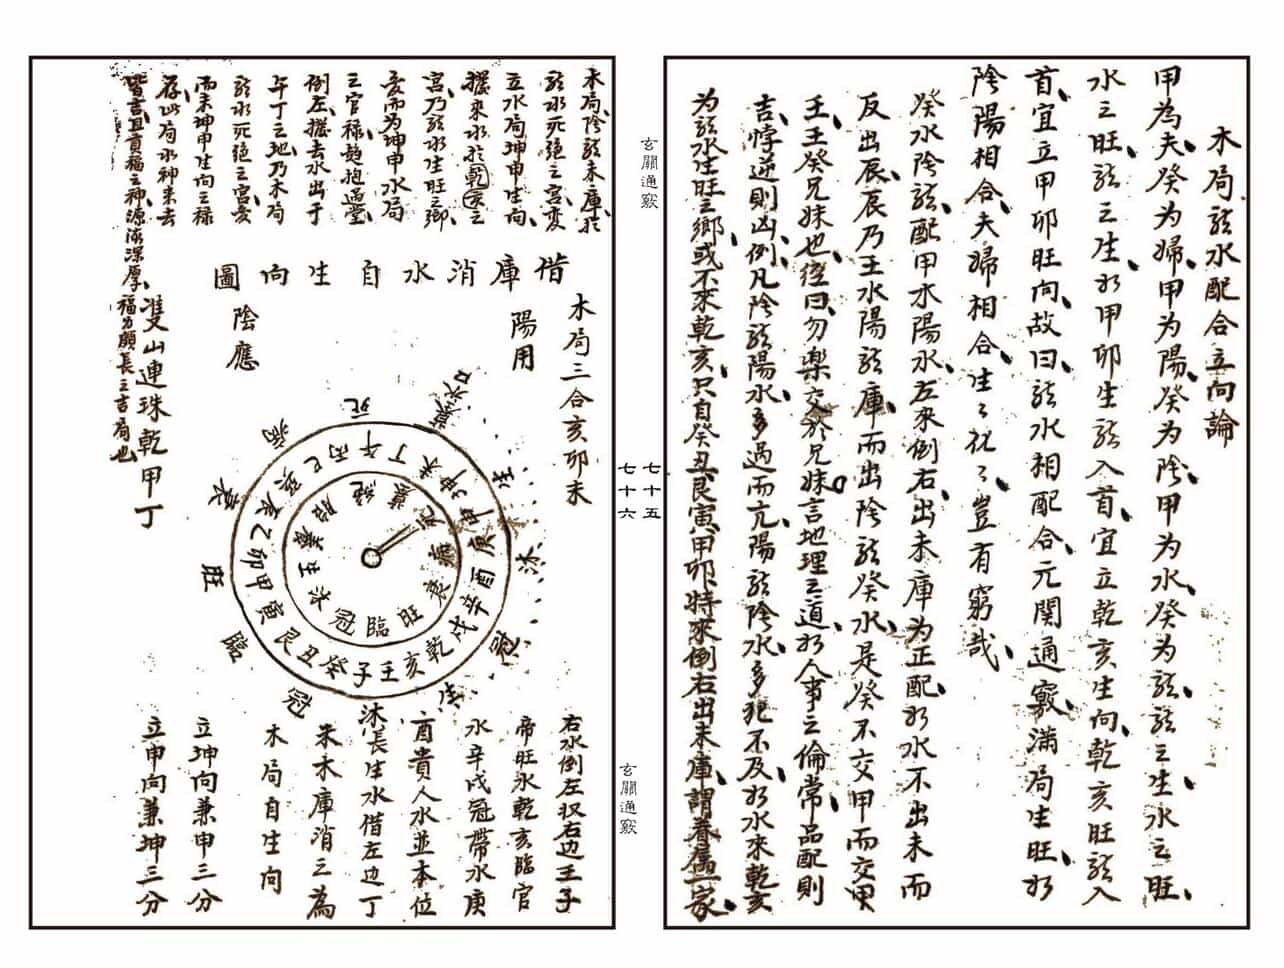 木局龍水配合立向論
甲為夫癸為婦甲為陽癸為陰甲為水癸為龍龍之生水之旺
水之旺龍之生如甲卯生龍入首宜立乾亥生向乾亥旺龍入
首宜立甲卯旺向故曰龍水相配合元關通竅滿局生旺如
陰陽相合夫婦相合生之化之豈有窮哉
癸水陰龍配甲水陽水左來倒右出未庫為正配如水不出未而
反出辰辰乃壬水陽龍庫而出陰龍癸水是癸不交甲而交甲
壬壬癸兄妹也經曰勿樂交於兄妹言地理之道如人事之倫常品配則
吉悖逆則凶倒凡陰龍陽水多過而亢陽龍陰水多犯不及如水來乾亥
为龍水生旺之鄉或不來乾亥只自癸丑艮寅甲卯特來倒右出未庫謂養廕一家
玄關通竅
七十五
七十六
玄關通竅
木局陰龍未庫於
龍水死絕之宮変
立水局坤申生向
擺來水於乾亥之
宮乃龍水生旺之鄉
亥而为坤申水局
之官祿趨抱過堂
倒左擺去水出于
午丁之地乃木局
龍水死絕之宮変
而未坤申生向之祿
存此局水神来去
皆吉且貴福之神源流深厚
福力顧長之吉局也
借庫消水自生向圖
木局三合亥卯未
陽用
陰應
雙山連珠乾甲丁
死
病
衰
旺
臨
冠
沐
生
冠
沐
生
墓水口
丁午丙巳巽辰乙卯甲寅艮丑癸子壬亥乾戌辛酉庚申坤未
墓絕胎養生沐冠臨旺衰病死
右水倒左収右边壬子
帝旺水乾亥臨官
水辛戌冠帶水庚
酉貴人水並本位
長生水借左边丁
未木庫消之為
木局自生向
立坤向兼申三分
立申向兼坤三分